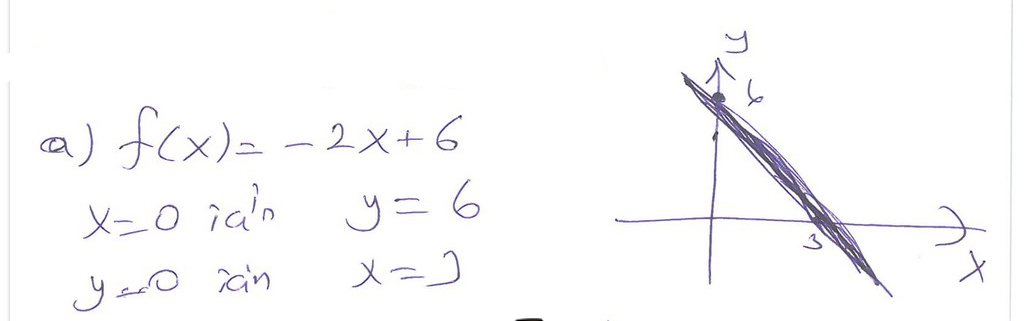 a) f(x) = -2x+6
x=0 için y=6
y=0 için x=3
y
6
3
x